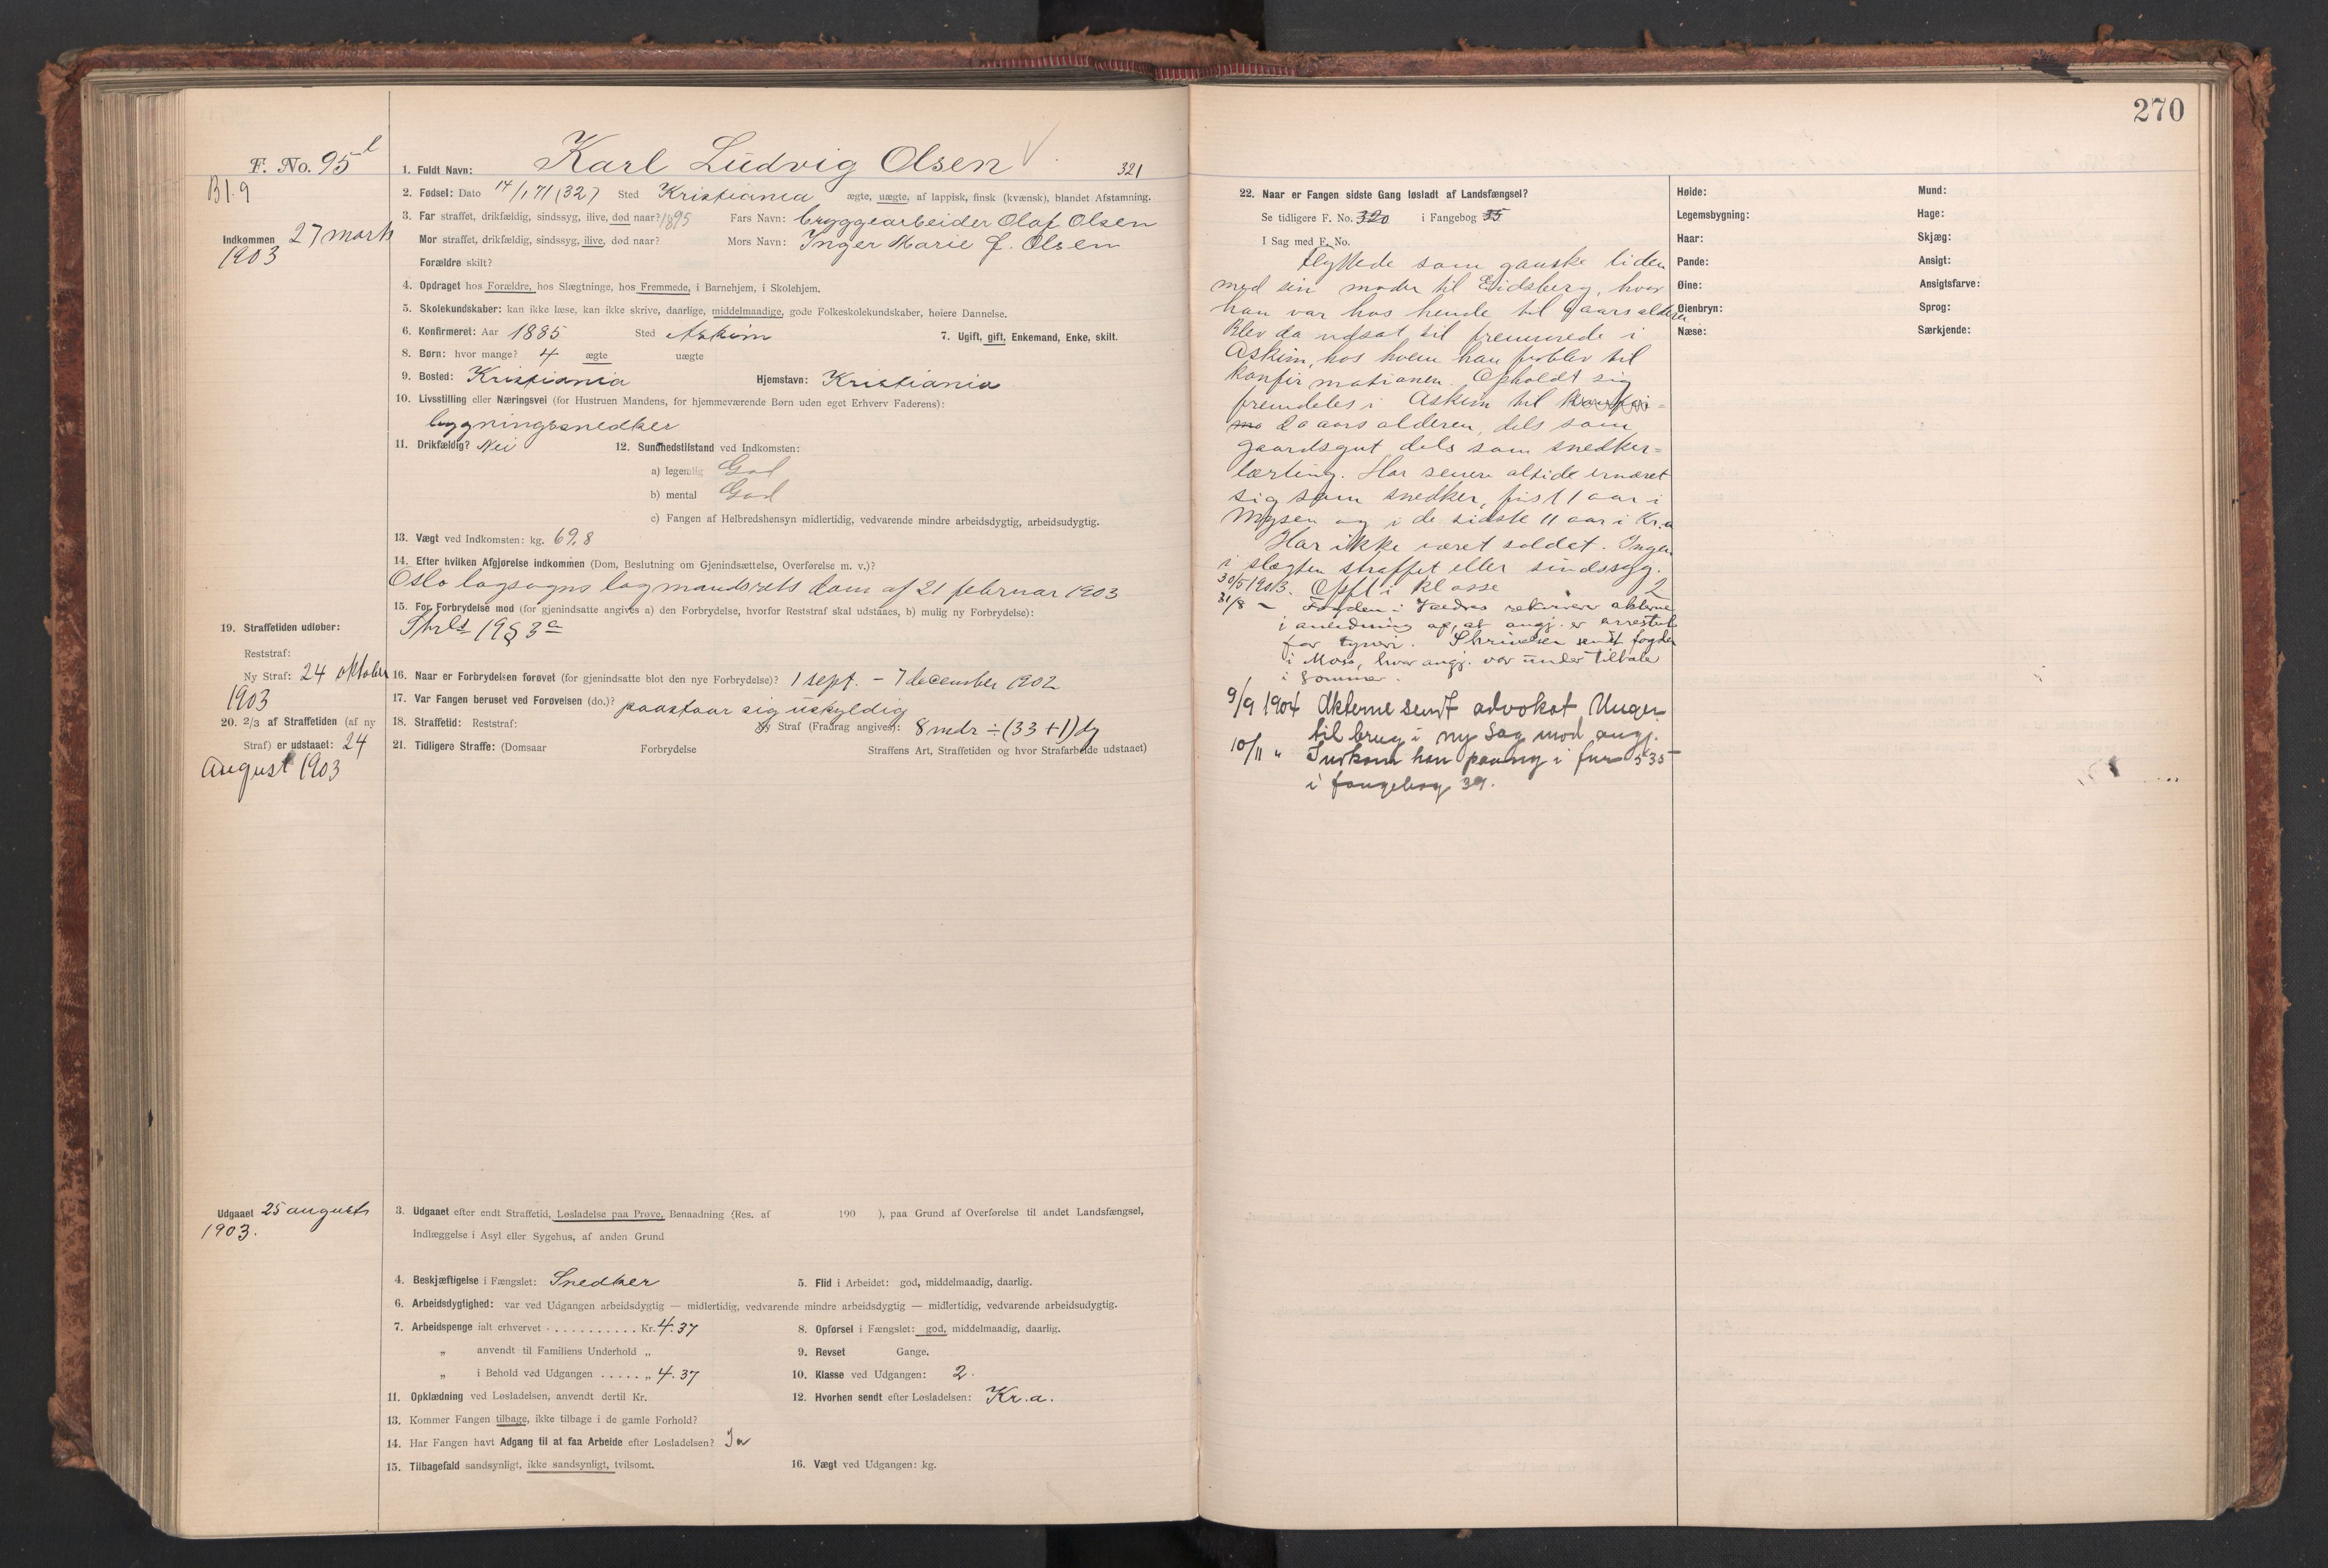 270
F. No. 95
B1.9
1. Fuldt Navn: Karl Ludvig Olsen 321
2. Fødsel: Dato 14/1 71 (32) Sted Kristiania ægte, uægte, af lappisk, finsk (kvænsk), blandet Afstamning.
Indkommen 27 marts
1903
3. Far straffet, drikfældig, sindssyg, ilive, død naar? 1895 Fars Navn: bryggearbeider Olaf Olsen
Mor straffet, drikfældig, sindssyg, ilive, død naar? Mors Navn: Inger Marie f. Olsen
Forældre skilt?
4. Opdraget hos Forældre, hos Slægtninge, hos Fremmede, i Barnehjem, i Skolehjem.
5. Skolekundskaber: kan ikke læse, kan ikke skrive, daarlige, middelmaadige, gode Folkeskolekundskaber, høiere Dannelse.
6. Konfirmeret: Aar 1885 Sted Askim 7. Ugift, gift, Enkemand, Enke, skilt.
8. Børn: hvor mange? 4 ægte uægte
9. Bosted: Kristiania Hjemstavn: Kristiania
10. Livsstilling eller Næringsvei (for Hustruen Mandens, for hjemmeværende Børn uden eget Erhverv Faderens):
bygningssnedker
11. Drikfældig? Nei 12. Sundhedstilstand ved Indkomsten:
a) legemlig God
b) mental God
c) Fangen af Helbredshensyn midlertidig, vedvarende mindre arbeidsdygtig, arbeidsudygtig.
13. Vægt ved Indkomsten: kg. 69,8
14. Efter hvilken Afgjørelse indkommen (Dom, Beslutning om Gjenindsættelse, Overførelse m. v.)?
Oslo lagsogns lagmandsrets dom af 21 februar 1903
15. For Forbrydelse mod (for gjenindsatte angives a) den Forbrydelse, hvorfor Reststraf skal udstaaes, b) mulig ny Forbrydelse):
Strl 19 § 3
19. Straffetiden udløber:
Reststraf:
Ny Straf: 24 oktober
1903
16. Naar er Forbrydelsen forøvet (for gjenindsatte blot den nye Forbrydelse)? 1 sept. – 7 december 1902
17. Var Fangen beruset ved Forøvelsen (do.)? paastaar sig uskyldig
18. Straffetid: Reststraf: Ny Straf (Fradrag angives): 8 mdr ÷ (33+1) dg
20. 2/3 af Straffetiden (af ny
Straf) er udstaaet: 24
August 1903
21. Tidligere Straffe: (Domsaar Forbrydelse Straffens Art, Straffetiden og hvor Strafarbeide udstaaet)
Udgaaet 25 august
1903.
3. Udgaaet efter endt Straffetid, Løsladelse paa Prøve, Benaadning (Res. af 190 ), paa Grund af Overførelse til andet Landsfængsel,
Indlæggelse i Asyl eller Sygehus, af anden Grund
4. Beskjæftigelse i Fængslet: Snedker 5. Flid i Arbeidet: god, middelmaadig, daarlig.
6. Arbeidsdygtighed: var ved Udgangen arbeidsdygtig — midlertidig, vedvarende mindre arbeidsdygtig — midlertidig, vedvarende arbeidsudygtig.
7. Arbeidspenge ialt erhvervet . . . . . . . . . . Kr. 4.37 8. Opførsel i Fængslet: god, middelmaadig, daarlig.
„ anvendt til Familiens Underhold „ 9. Revset Gange.
„ i Behold ved Udgangen . . . . . „ 4.37 10. Klasse ved Udgangen: 2.
11. Opklædning ved Løsladelsen, anvendt dertil Kr. 12. Hvorhen sendt efter Løsladelsen: Kr.a.
13. Kommer Fangen tilbage, ikke tilbage i de gamle Forhold?
14. Har Fangen havt Adgang til at faa Arbeide efter Løsladelsen? Ja
15. Tilbagefald sandsynligt, ikke sandsynligt, tvilsomt. 16. Vægt ved Udgangen: kg.
22. Naar er Fangen sidste Gang løsladt af Landsfængsel?
Se tidligere F. No. 320 i Fangebog 35
I Sag med F. No.
Flyttede som ganske liden
med sin moder til Eidsberg, hvor
han var hos hende til 9 aars alderen
Blev da udsat til fremmede i
Askim, hos hvem han forblev til
konfirmationen. Opholdt sig
fremdeles i Askim til
20 aars alderen, dels som
gaardsgut dels som snedker=
lærling. Har senere altid ernæret
sig som snedker, først 1 aar i
Mysen og i de sidste 11 aar i Kr.a
Har ikke været soldat. Ingen
i slægten straffet eller sindssyg.
30/5 1903. Opfl i klasse 2
31/8 – Fogden i Valdres rekvirerer akterne
i anledning af, at angj. er arresteret
for tyveri. Skrivelsen sendt fogden
i Moss, hvor angj. var under tiltale
i sommer.
9/9 1904 Akterne sendt advokat Unger
til brug i ny sag mod angj.
10/11 „ Indkom han paany i fnr 535
i fangebog 39.
Høide: Mund:
Legemsbygning: Hage:
Haar: Skjæg:
Pande: Ansigt:
Øine: Ansigtsfarve:
Øienbryn: Sprog:
Næse: Særkjende: